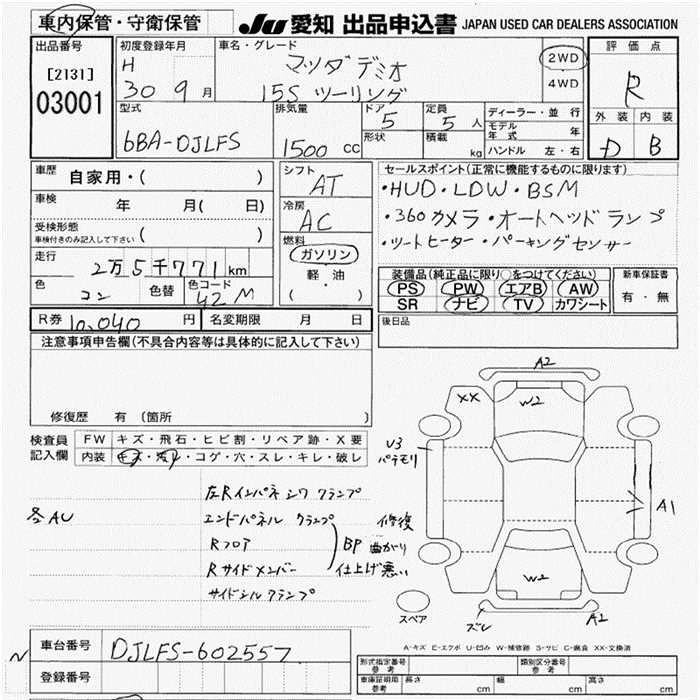 車内保管・守衛保管
JU 愛知 出品申込書 JAPAN USED CAR DEALERS ASSOCIATION
出品番号
[2131]
03001
初度登録年月
H
30 9 月
車名・グレード
マツダ デミオ
15S ツーリング
2WD
4WD
評価点
R
外装 内装
D B
型式
6BA-DJLFS
排気量
1500 cc
ドア
5
形状
定員
5 人
積載
kg
ディーラー・並行
モデル年式 年
ハンドル 左・右
車歴
自家用・( )
車検
年 月( 日)
受検形態
車検付きのみ記入して下さい ( )
走行
2万5千771 km
色
コン
色替
色コード
42M
シフト
AT
冷房
AC
燃料
ガソリン
軽・油
( )
セールスポイント(正常に機能するものに限ります)
・HUD・LDW・BSM
・360カメラ・オートヘッドランプ
・シートヒーター・パーキングセンサー
装備品(純正品に限り○をつけてください)
PS PW エアB AW
SR ナビ TV カワシート
新車保証書
有・無
R券 10,040 円
名変期限 月 日
後日品
注意事項申告欄(不具合内容等は具体的に記入して下さい)
修復歴 有(箇所 )
検査員記入欄
FW キズ・飛石・ヒビ割・リペア跡・X要
内装 キズ・汚れ・コゲ・穴・スレ・キレ・破レ
左Rインパネ シワ クランプ
冬AU
エンドパネル クランプ
Rフロア
Rサイドメンバー
サイドシルクランプ
BP
修復
曲がり
仕上げ悪い
A2
XX
W2
U3
パテモリ
A1
W2
スペア
ズレ
A2
A-キズ E-エクボ U-凹み W-補修跡 S-サビ C-腐食 XX-交換済
車台番号
DJLFS-602557
登録番号
N
型式指定番号
参考
類別区分番号
参考
車庫証明用
参考
長さ cm
幅 cm
高さ cm